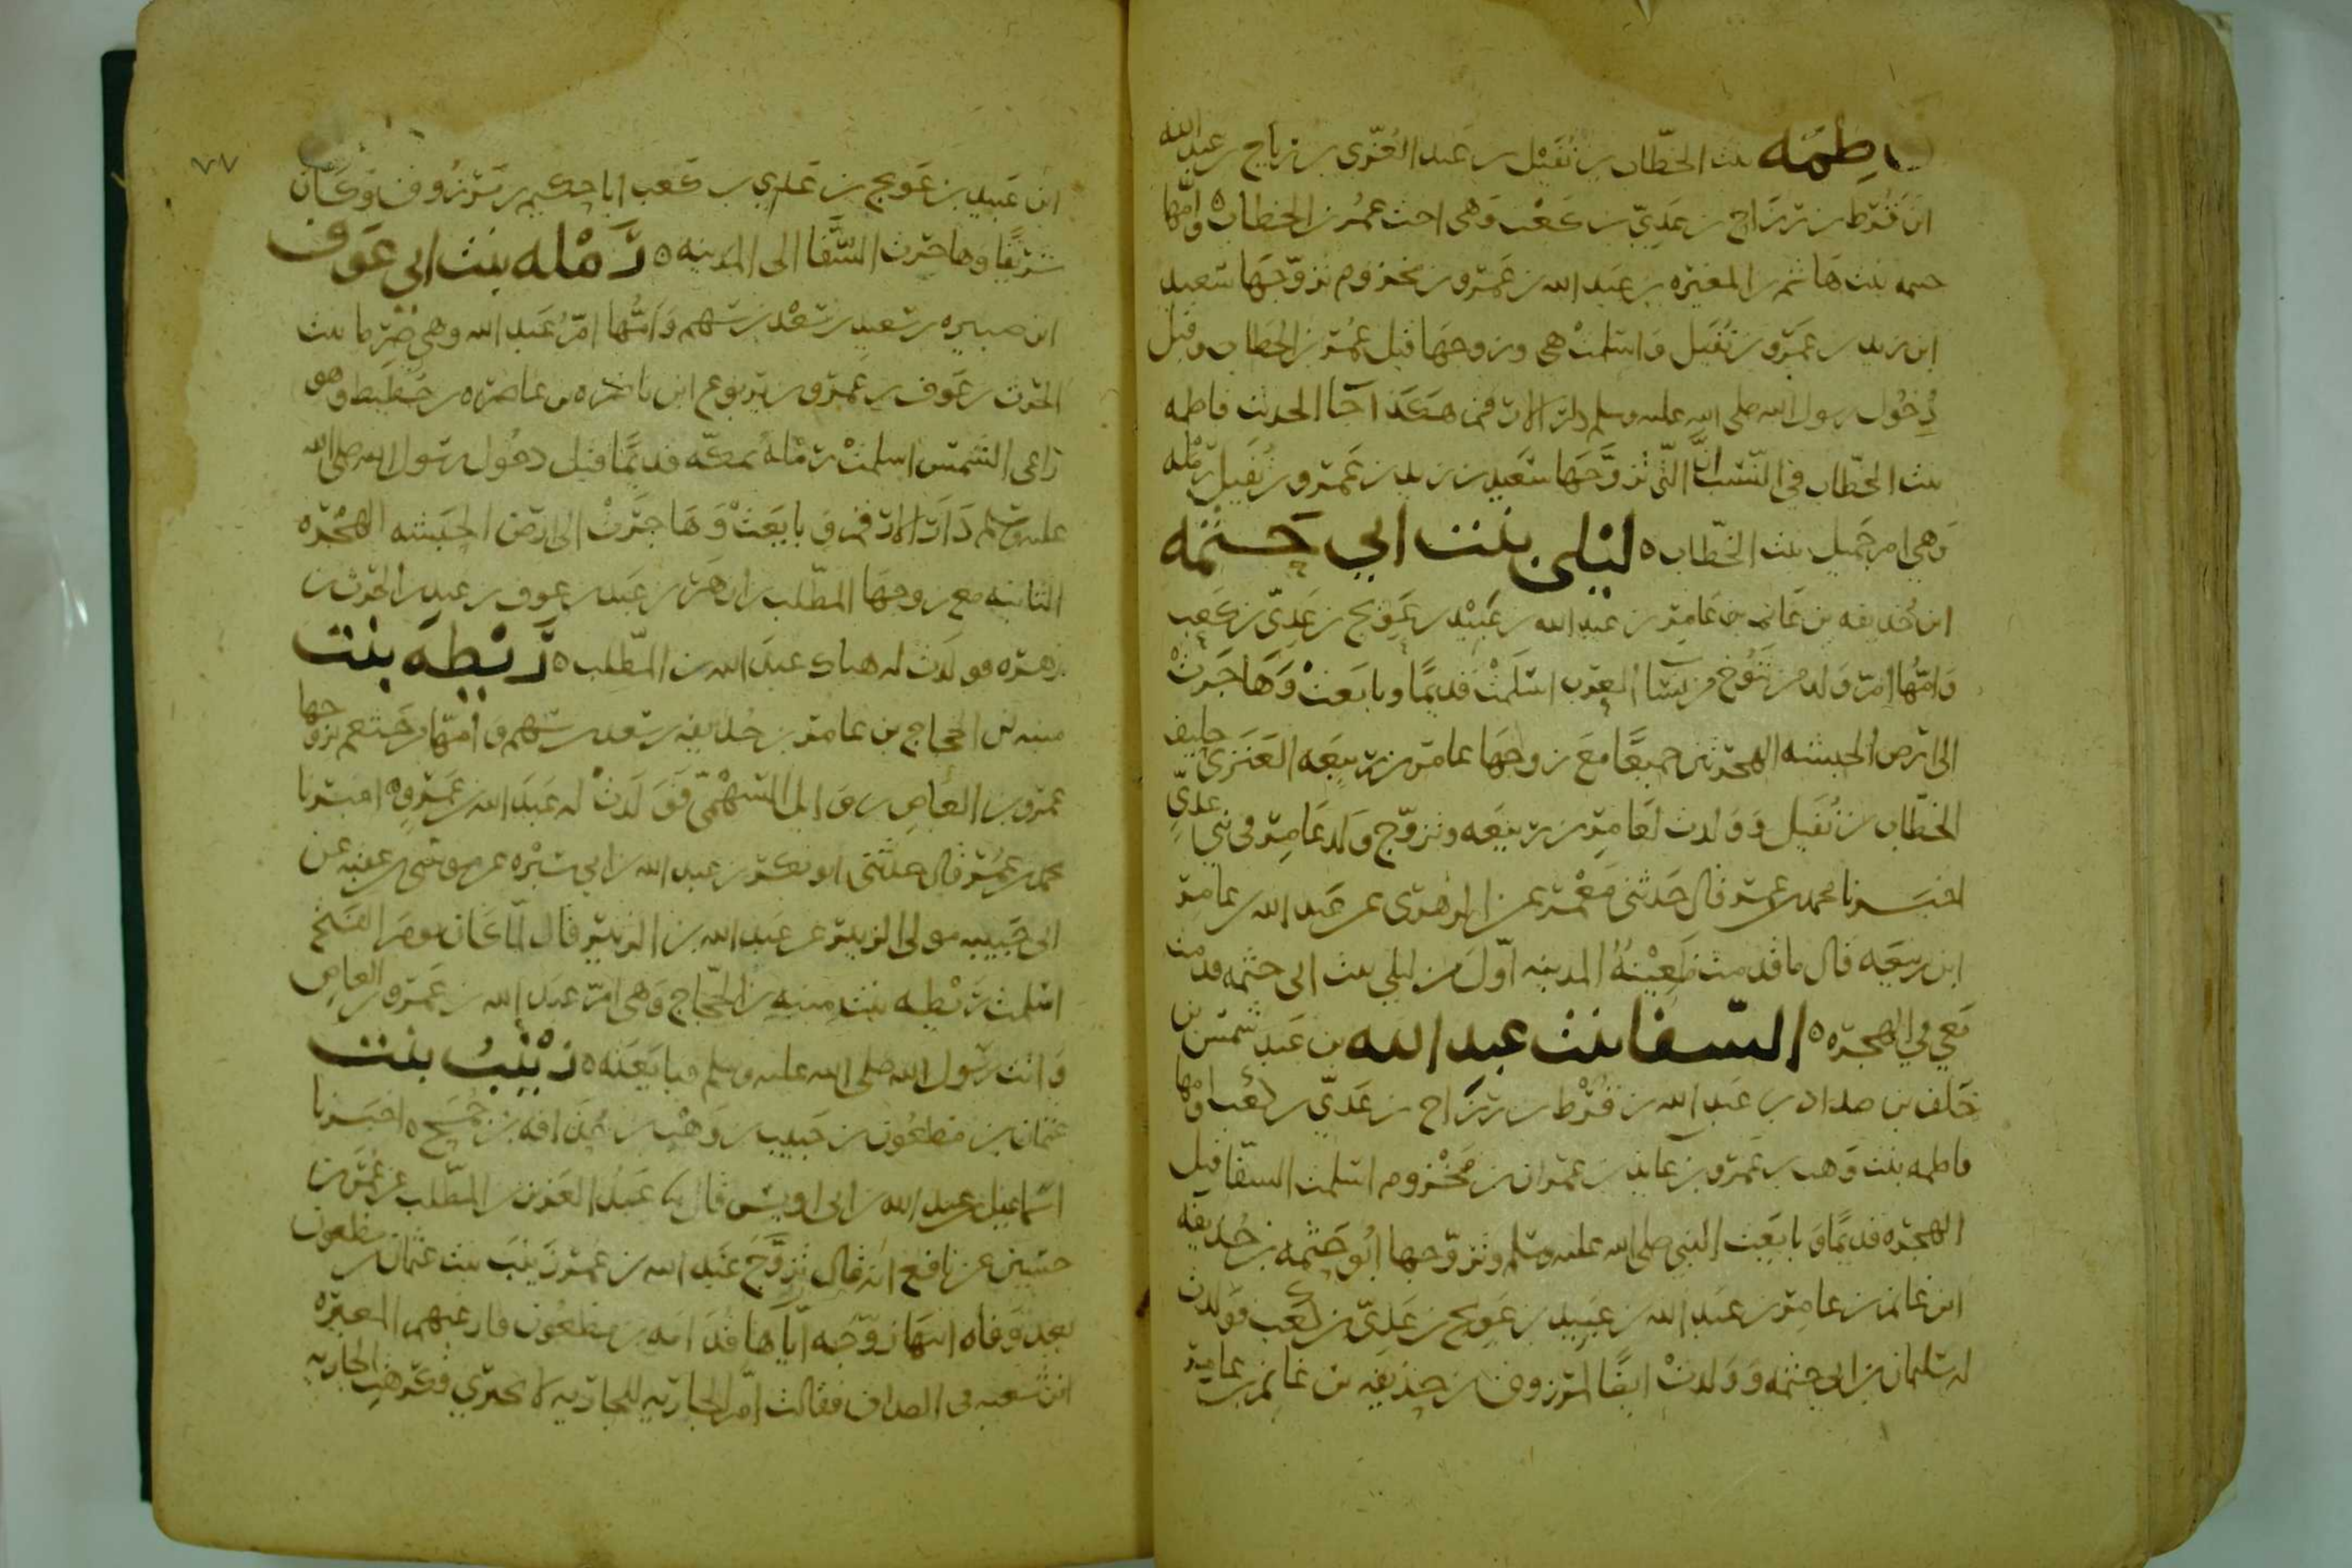 فاطمه بنت الخطّاب بن نُفَيْل بن عبد العُزّى بن رياح بن عبد الله
ابن قُرْط بن رَزَاح بن عَدِيّ بن كَعْب وَهى اخت عمر بن الخطاب ه وأمّها
حنتمه بنت هاشم بن المغيره بن عبد الله بن عَمْرو بن مخزوم تزوّجَها سَعيد
ابن زيد بن عمرو بن نُفَيل وَاسلمتْ هى وزوجهَا قبل عُمَر بن الخطاب وقبل
دُخُول رسول الله صلى الله عليه وسلم دار الارقم هكذا جآ الحديث فاطمه
بنت الخطّاب في النّسب انَّ التي تزوَّجَها سَعيد بن زيد بن عَمْرو بن نُفَيل رمْله
وَهي ام جَميل بنت الخطّاب ه ليْلى بنت ابي حَثْمَه
ابن حُذيفه بن غانم بن عَامِر بن عبد الله بن عَبِيْد بن عَويج بن عَدِيّ بن كَعب
وَامُّها امّ وَلد من تنُوخ من سَبَآ العرب اسْلَمَتْ قديمًا وبايَعَتْ وَهَاجَرَتْ
الى ارض الحبشه الهجرتين جميعًا مَعَ زوجهَا عامر بن رَبيعَه العَنَزى حليف
الخطّاب بن نُفَيل وَوَلدت لعَامِر بن رَبيعَه وتزوّج وَلدُ عَامِر فى بني عَدِيّ
اخبَرنا محمد بن عمر قال حَدثنى مَعْمَر عن الزهرى عن عَبد الله بن عامر
ابن ربيعَه قال ما قدمت ظَعِيْنةُ المدينه اوّلَ من ليلى بنت ابى حثمه قدمت
مَعي في الهجره ه الشفا بنت عبد الله بن عَبد شمس بن
خَلَف بن صداد بن عَبد الله بن قُرْط بن رَزَاح بن عَدىّ بن كعب وامها
فاطمه بنت وَهب بن عَمرو بن عَايذ بن عمران بن مَخْزوم اسْلمت الشفّا قبل
الهجره قديمًا وَبايَعت النبي صلى الله عليه وسلم وتزوّجها ابُو حَثمه بن حُذيفه
ابن غانم بن عامِر بن عبد الله بن عَبِيد بن عَويج بن عَدِيّ بن كعَب فوَلدت
له سُليمان بن ابي حثمه وَوَلدتْ ايضًا لمرزوق بن حذيفه بن غانم بن عامر
٧٧
ابن عَبيد بن عَويج بن عَدِي بن كَعب ابا حكيم بن مَرزُوق وَكَان
شريفًا وَهاجرت الشَّفا الى المدينه ه رَمْله بنت ابي عَوف
ابن صبيره بن سَعيد بن سَعْد بن سَهم وَامُّها امّ عَبد الله وهي صِرما بنت
الحرث بن عَوف بن عَمرو بن يربوع ابن ناضره بن عاضره بن حَطيط وهو
رَاعى الشمس اسلمتْ رَمْله بمكّه قديمًا قبل دخُول رسُول الله صلى الله
عليه وسلم دَار الارقم وَبايَعَتْ وَهَاجَرَتْ الى ارض الحبَشه الهجْره
الثانيه مع زوجهَا المطّلب بن ازهَر بن عَبد بن عوف بن عبد بن الحرث بن
زهره فولدَت له هناك عبدَ الله بن المطّلب ه رَيْطَه بنت
منبه بن الحجاج بن عامر بن حُذيفه بن سَعد بن سَهم وَامّها من خَثعم تزوجها
عمرو بن العَاص بن وَايل السَّهْمىّ فَوَلدَتْ له عَبدَ الله بن عَمْرو ه اخبَرنا
محمد بن عُمَر قال حدثنى ابو بكر بن عبد الله بن ابي سَبْره عن موسى بن عقبه عن
ابى حَبيبه مولى الزبير عن عَبد الله بن الزبَير قال لمّا كَان يومَ الفتح
اسْلمت رَيْطه بنت منبه بن الحجّاج وَهى امّ عَبد الله بن عَمرو بن العاص
وَاتت رَسُول الله صلى الله عليه وسلم فبايَعَته ه زَيْنَبُ بنت
عثمان بن مَظعُون بن حَبيب بن وَهْب بن حُذافه بن جُمَح ه اخبَرنا
اسْماعيل بن عبد الله بن ابى اويس قال نا عَبدُ العَزيز بن المطّلب عن عُمَر بن
حسَين عن نافع انه قال تزوَّجَ عَبد الله بن عُمر زَينَبَ بنت عثمان بن مظعون
بعد وَفاه ابيهَا زوّجَه ايّاها قُدَامَه بن مظعُون فارغبهم المغيره
ابن شعبه فى الصداق فقالت امّ الجاريه للجَاريه لا تجيزي فكرهت الجاريه